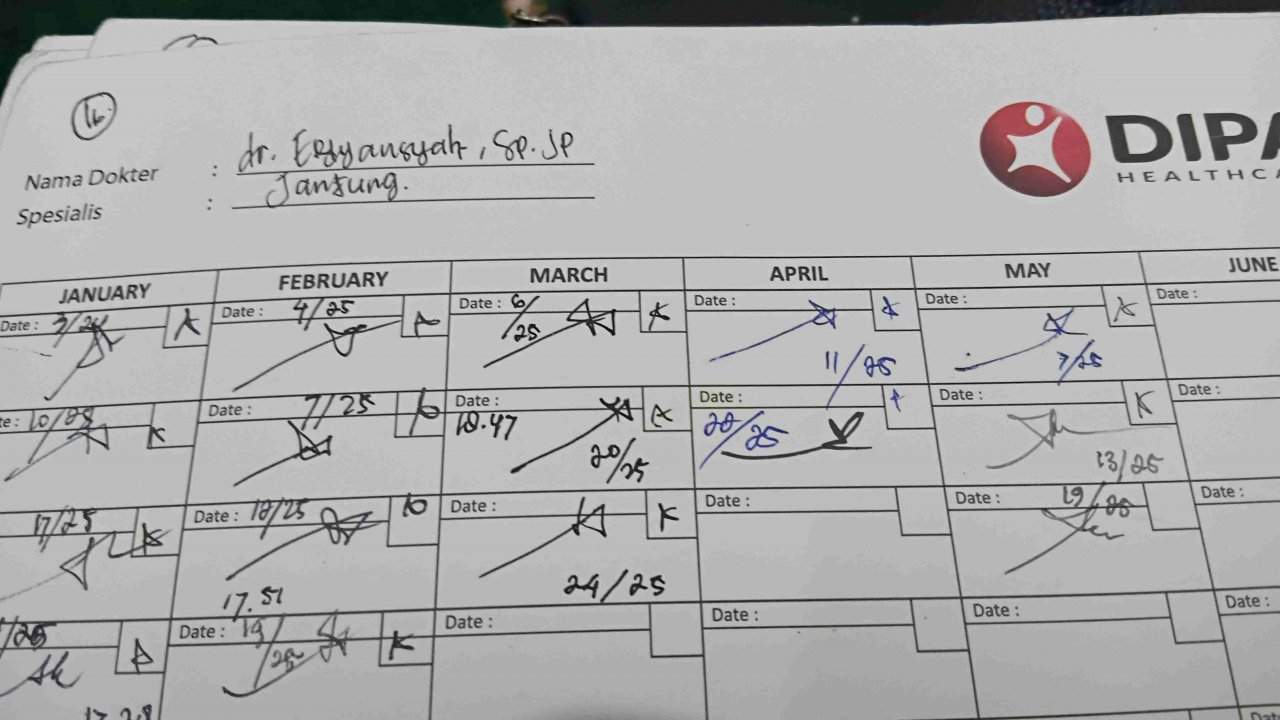 16.
Nama Dokter : dr. Ersyansyah, Sp.JP
Spesialis : Jantung.
DIPA
HEALTHCA
JANUARY FEBRUARY MARCH APRIL MAY JUNE
Date : 3/24 A Date : 4/25 A Date : 6/25 K Date : 11/25 Date : 7/25 A Date :
te : 10/25 K Date : 7/25 b Date : 18.47 20/25 A Date : 28/25 Date : 13/25 K Date :
17/25 K Date : 18/25 b Date : 24/25 K Date : Date : 19/25 Date :
17.51
/25 A Date : 19/25 K Date : Date : Date : Date :